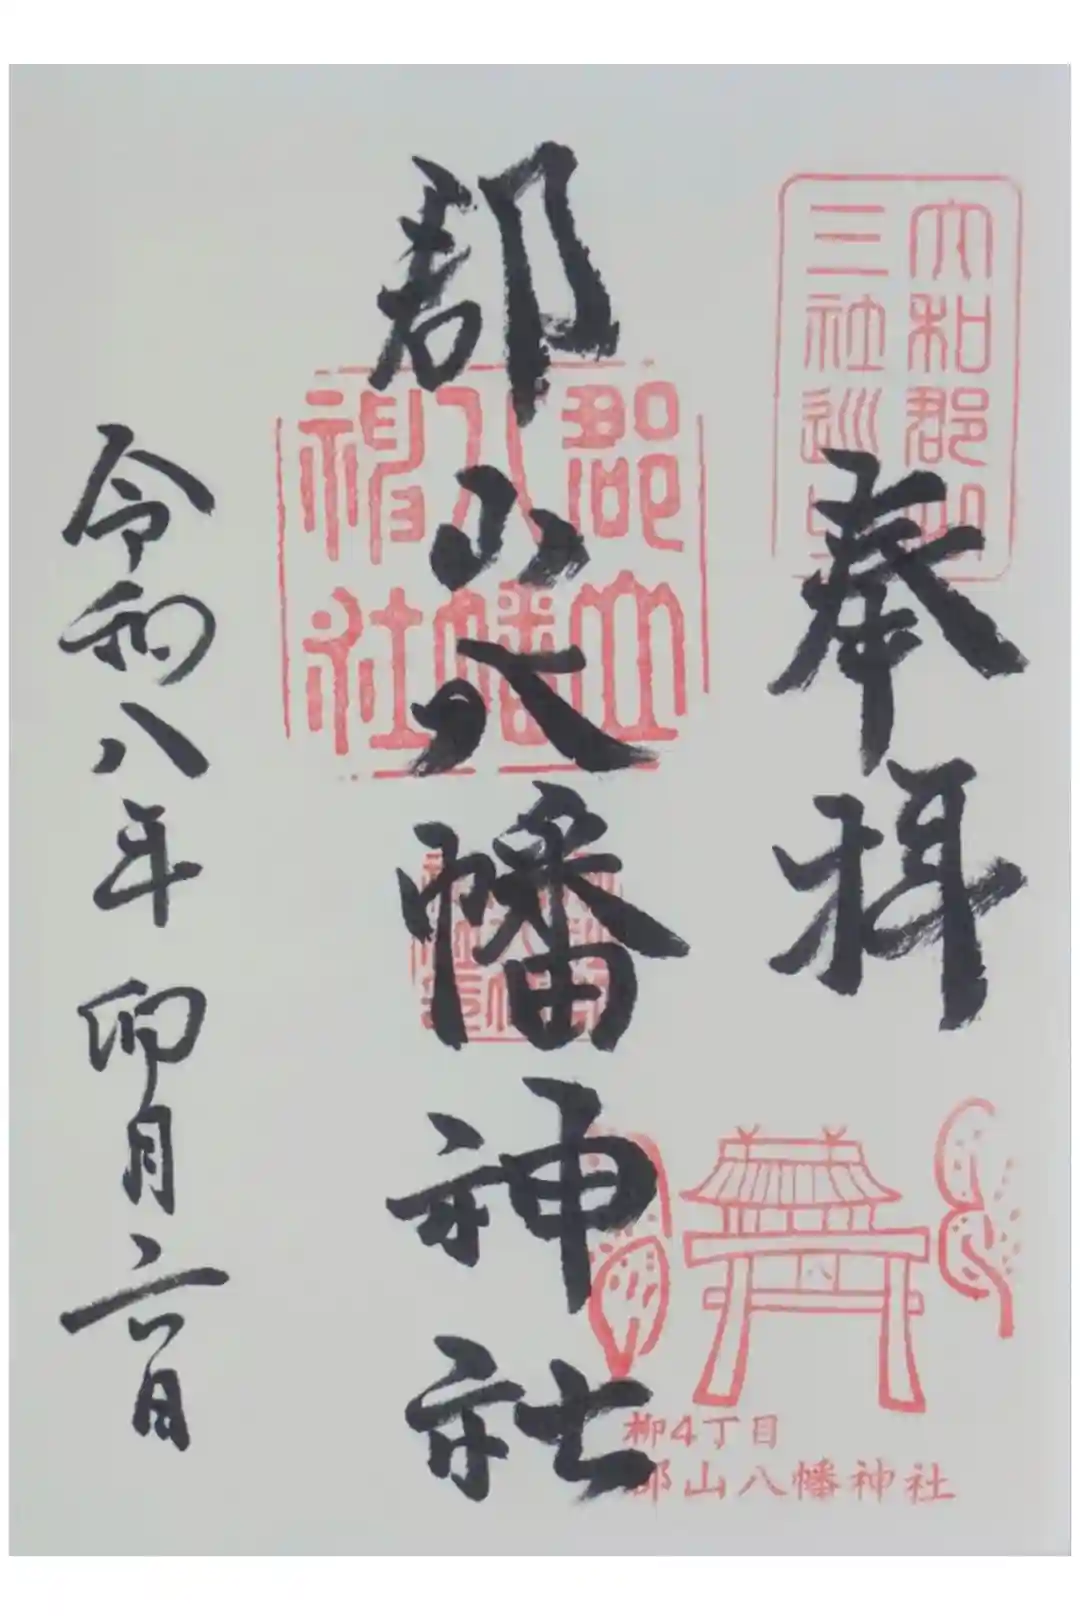 大和郡山
三社巡り
奉拝
郡山八幡神社
郡山
八幡
神社
柳4丁目
郡山八幡神社
令和八年卯月六日